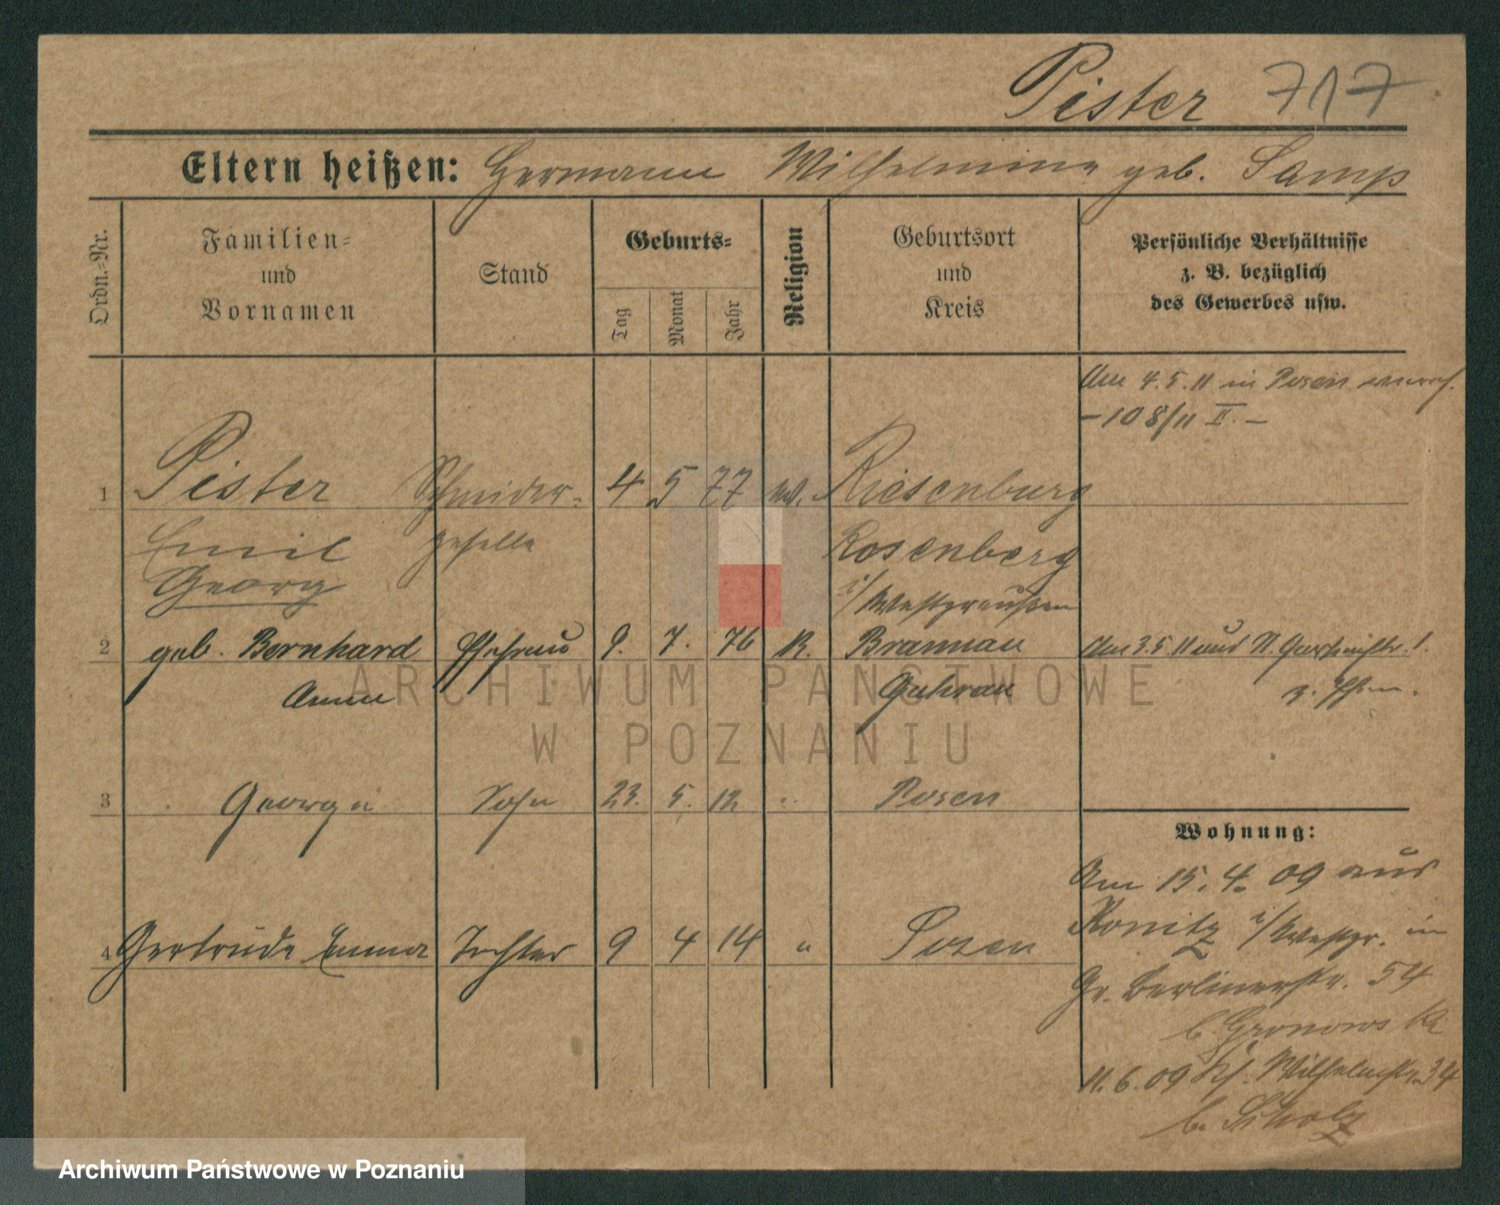 Pister 717
Eltern heißen: Hermann Wilhelmine geb. Samp
Ordn.-Nr.
Familien-
und
Vornamen
Stand
Geburts-
Tag
Monat
Jahr
Religion
Geburtsort
und
Kreis
Persönliche Verhältnisse
z. B. bezüglich
des Gewerbes usw.
Am 4.5.11 in Posen
-108/11 II.-
1 Pister Schneider- 4 5 77 ev. Riesenburg
Emil geselle Rosenberg
Georg i/Westpreußen
2 geb. Bernhard Ehefrau 9. 7. 76 K. Braunau Am 3.5.11 aus
Anna Guhrau
3 Georg Sohn 23. 5. 12 " Posen
Wohnung:
Am 15. 4. 09 aus
Konitz i/Westpr. in
4 Gertrude Emma Tochter 9 4 14 " Posen
Gr. Berlinerstr. 54
b. Gronowski
11.6.09 Kr. Wilhelmstr. 34
b. Scholz
ARCHIWUM PAŃSTWOWE
W POZNANIU
Archiwum Państwowe w Poznaniu